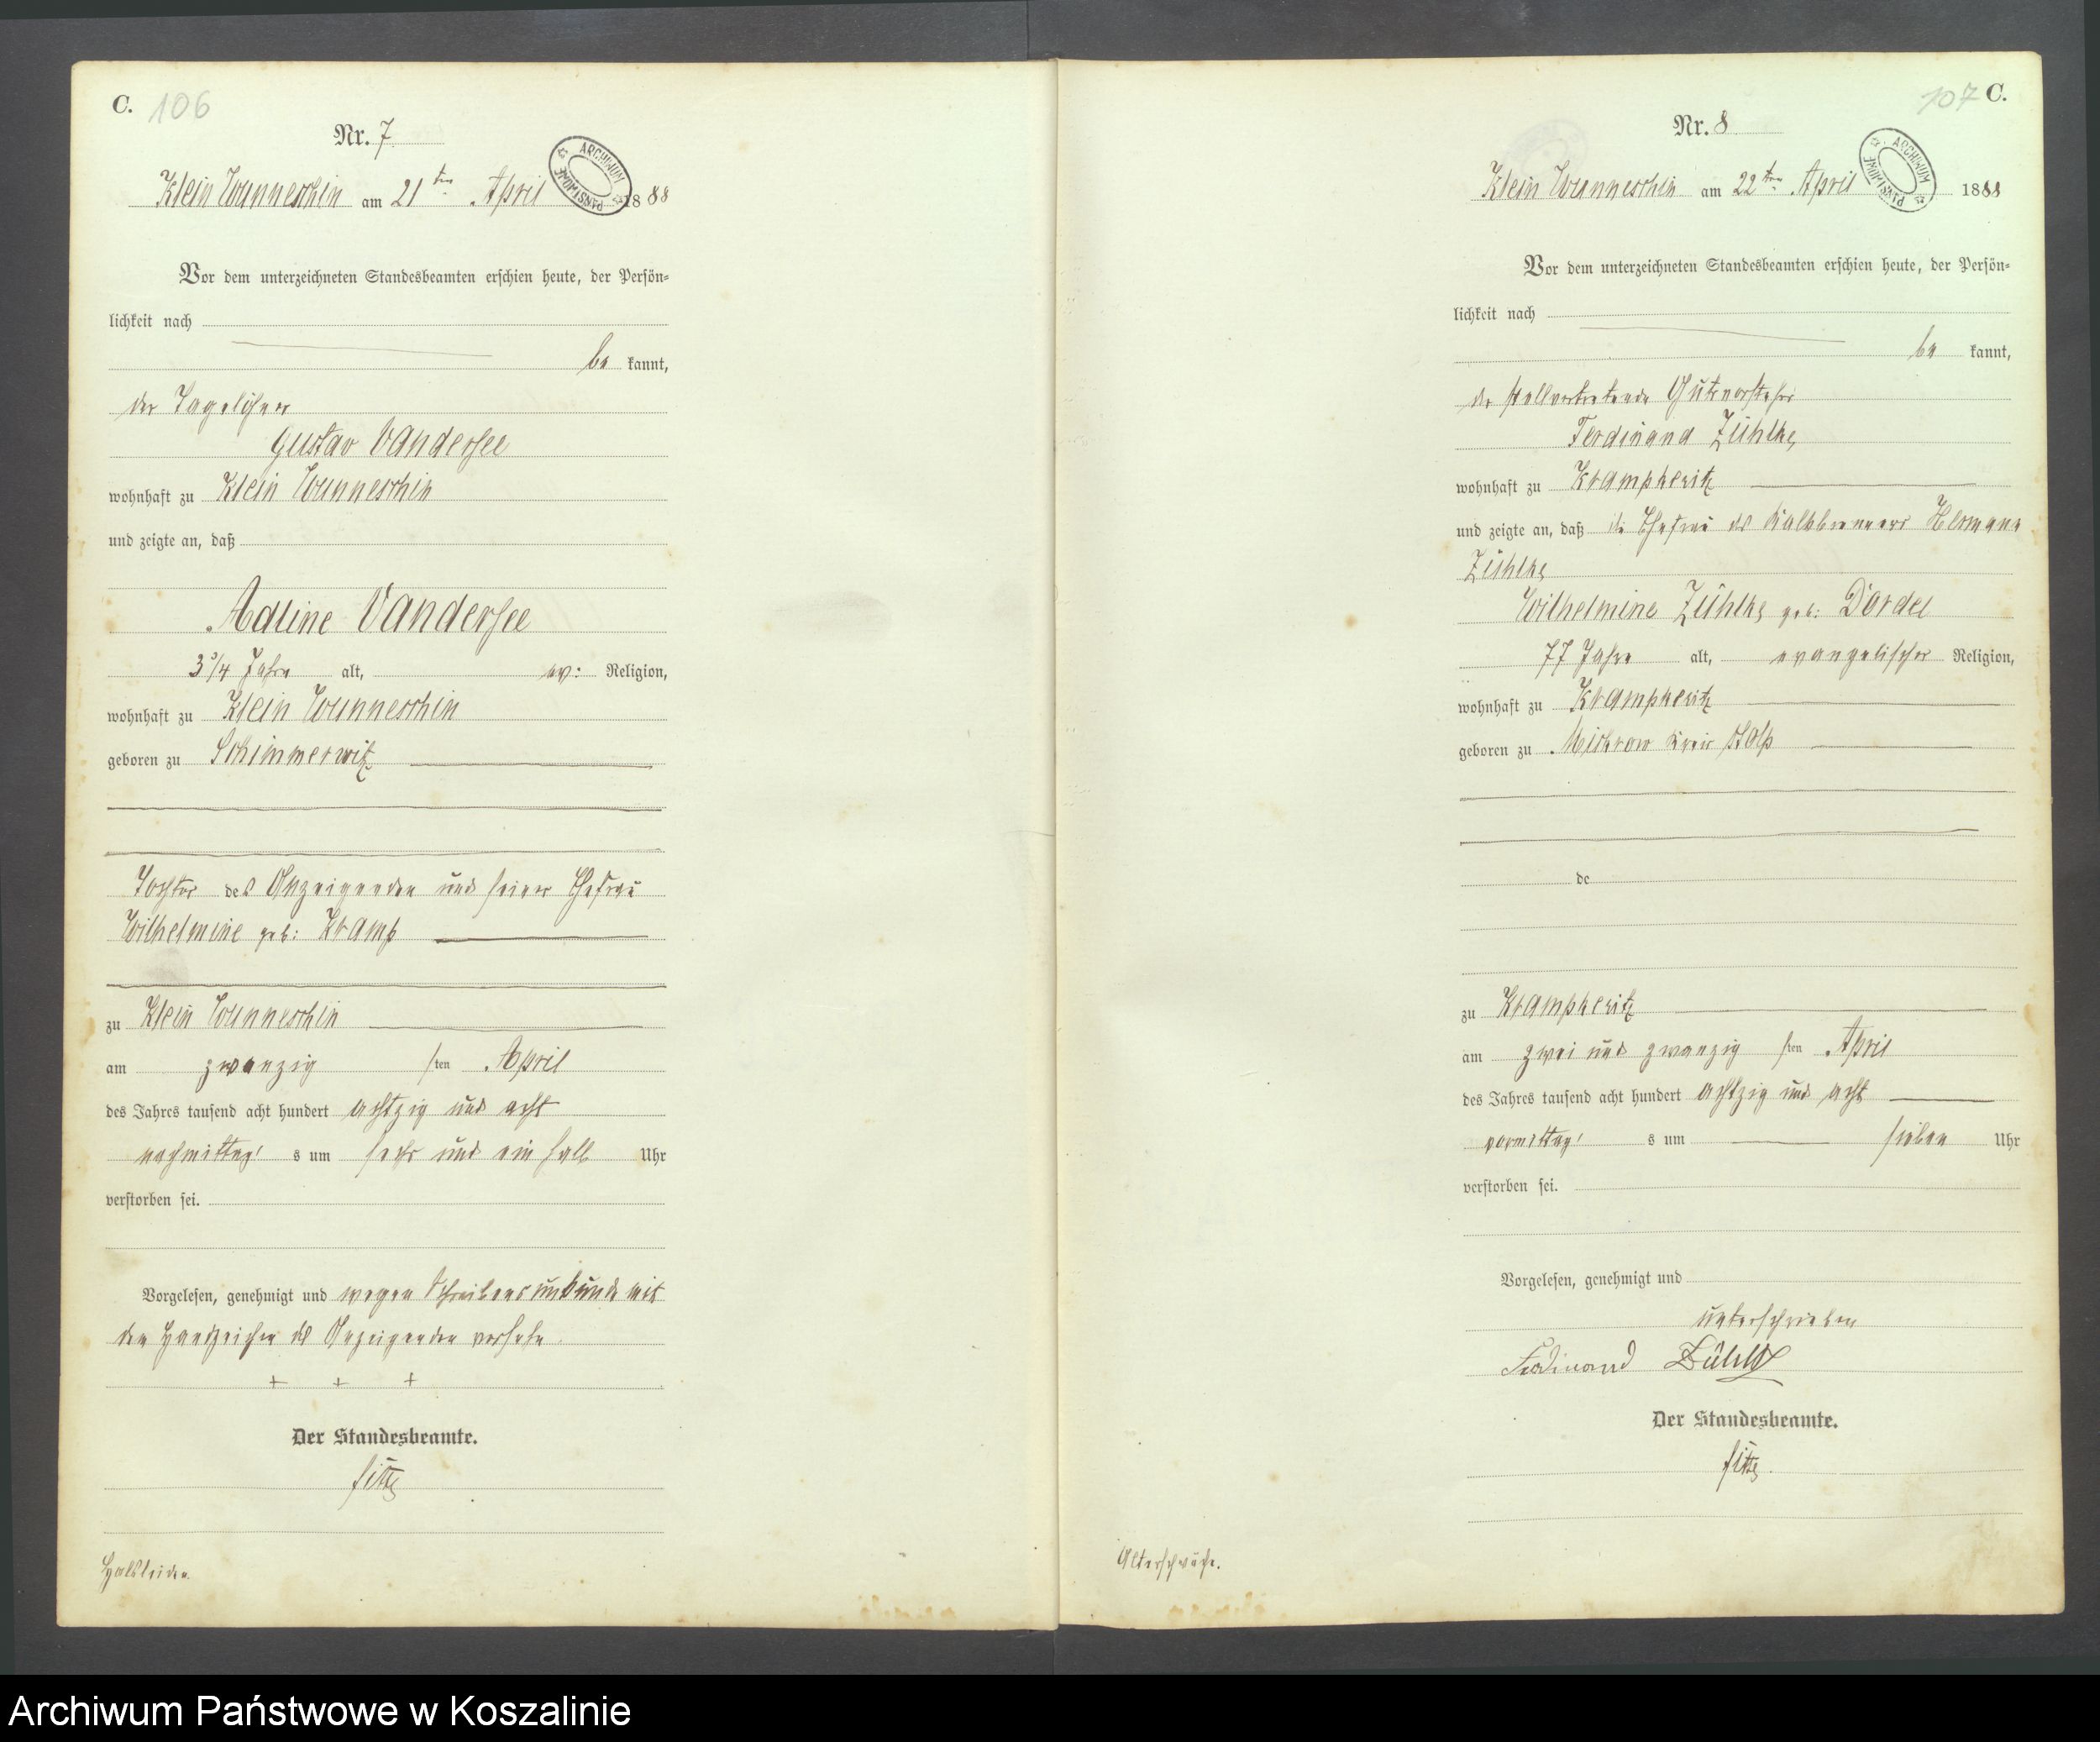 C. 106
Nr. 7.
ARCHIWUM PAŃSTWOWE
Klein Wunneschin am 21ten April 1888
Vor dem unterzeichneten Standesbeamten erschien heute, der Persön-
lichkeit nach
be kannt,
der Tagelöhner
Gustav Vandersee
wohnhaft zu Klein Wunneschin
und zeigte an, daß
Adline Vandersee
3 3/4 Jahre alt, ev: Religion,
wohnhaft zu Klein Wunneschin
geboren zu Schimmerwitz
Tochter des Anzeigenden und seiner Ehefrau
Wilhelmine geb: Kramp
zu Klein Wunneschin
am zwanzig sten April
des Jahres tausend acht hundert achtzig und acht
nachmittag s um sechs und ein halb Uhr
verstorben sei.
Vorgelesen, genehmigt und wegen Schreibensunkunde mit
den Handzeichen des Anzeigenden versehn.
+ + +
Der Standesbeamte.
Halsleiden.
107 C.
Nr. 8
ARCHIWUM PAŃSTWOWE
Klein Wunneschin am 22ten April 1888
Vor dem unterzeichneten Standesbeamten erschien heute, der Persön-
lichkeit nach
be kannt,
der stellvertretende Gutsvorsteher
Ferdinand Zühlke,
wohnhaft zu Krampkewitz
und zeigte an, daß die Ehefrau des Kalkbrenners Hermann
Zühlke
Wilhelmine Zühlke geb: Dordel
77 Jahre alt, evangelischer Religion,
wohnhaft zu Krampkewitz
geboren zu Mickrow Kreis Stolp
de
zu Krampkewitz
am zwei und zwanzig sten April
des Jahres tausend acht hundert achtzig und acht
vormittag s um sieben Uhr
verstorben sei.
Vorgelesen, genehmigt und
unterschrieben
Ferdinand Zühlke
Der Standesbeamte.
Alterschwäche.
Archiwum Państwowe w Koszalinie